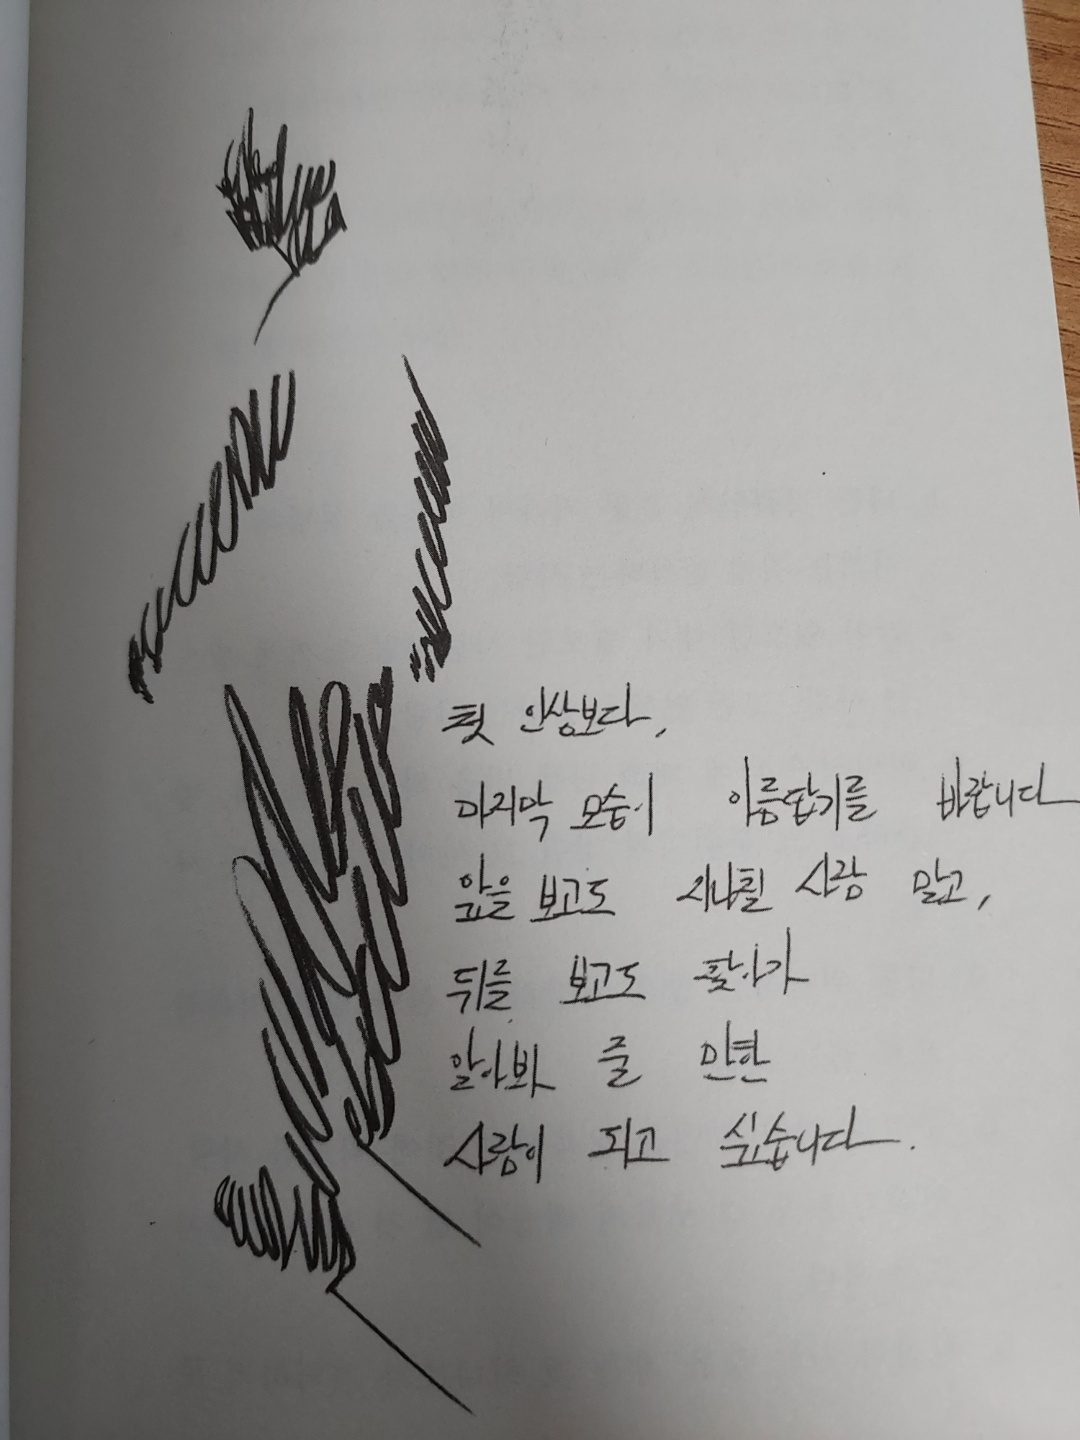 첫 인상보다,
마지막 모습이 아름답기를 바랍니다
앞을 보고도 지나칠 사람 말고,
뒤를 보고도 찾아가
알아봐 줄 만한
사람이 되고 싶습니다.